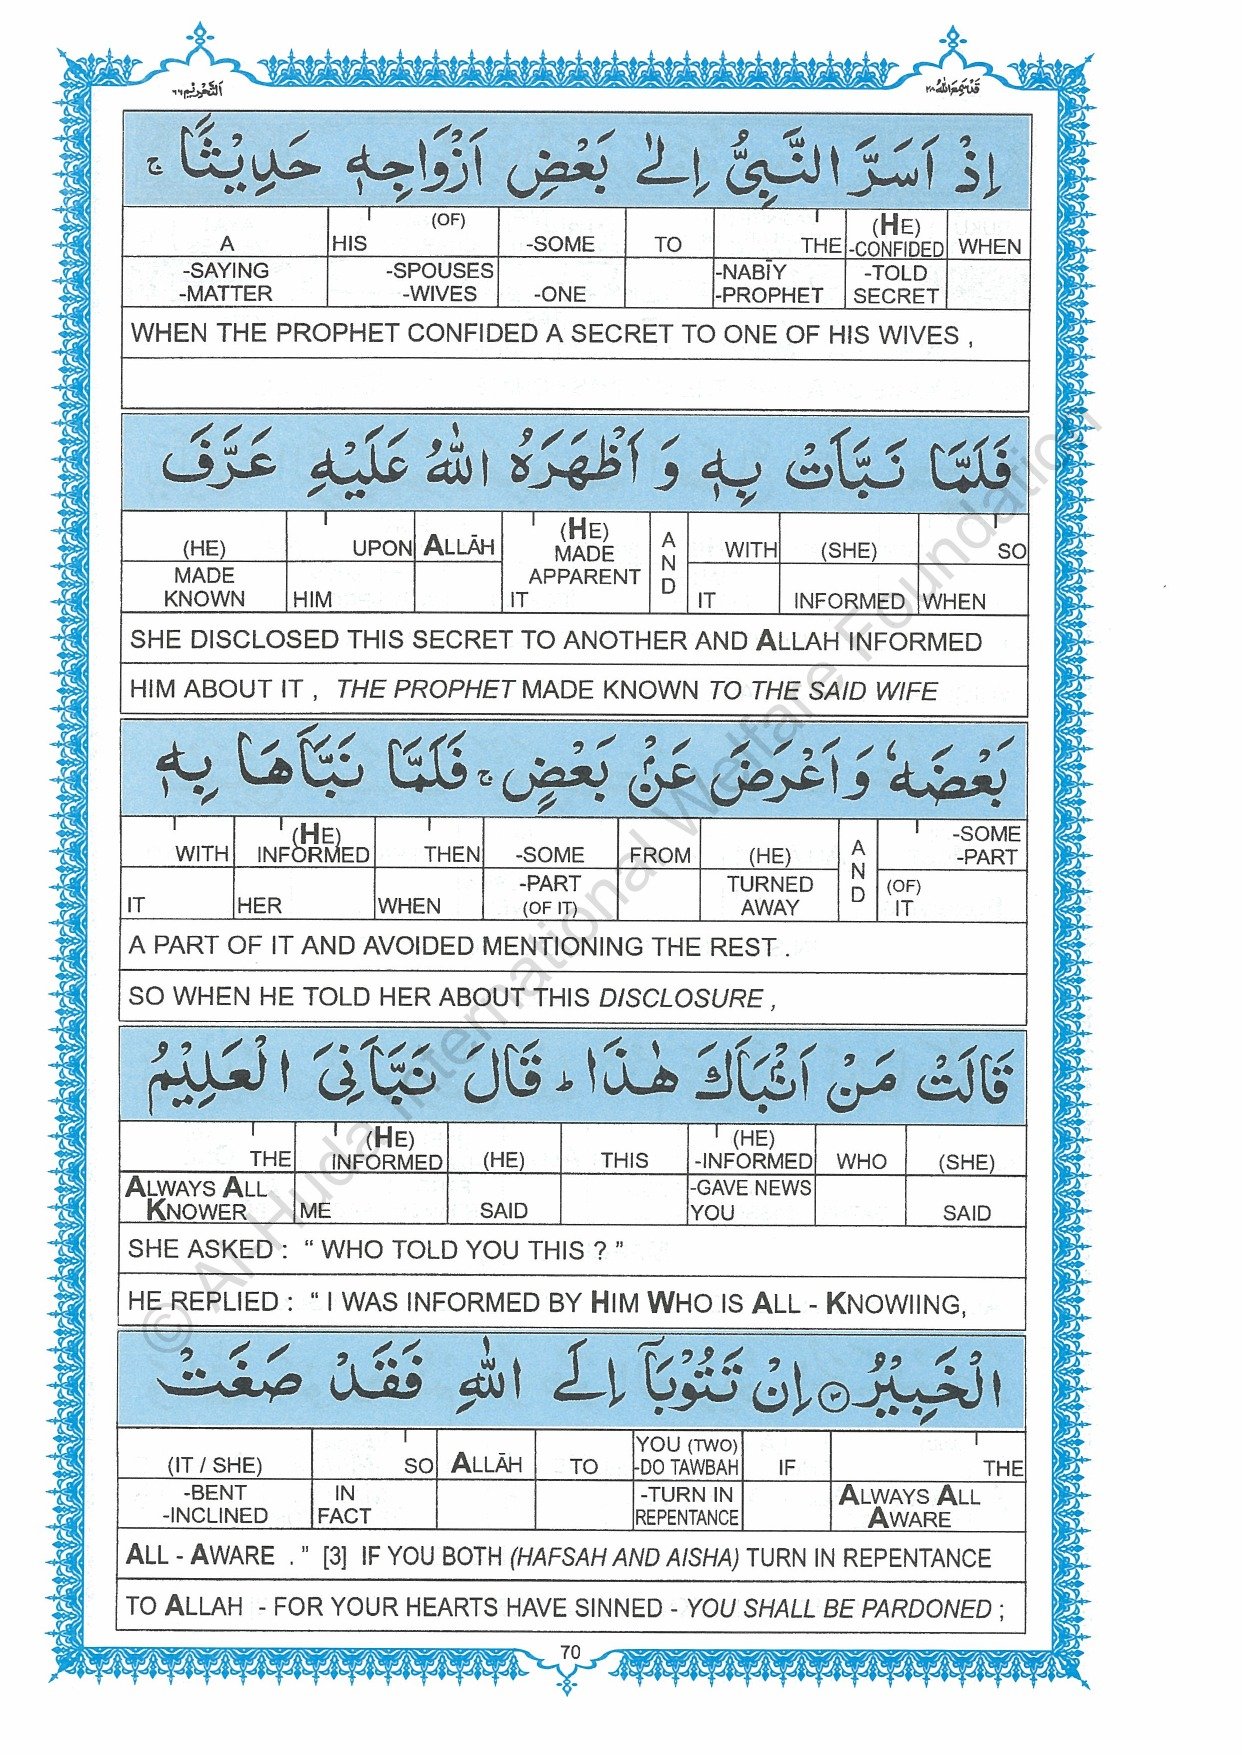 التحریم ٦٦
قد سمع الله ٢٨
اِذْ اَسَرَّ النَّبِیُّ اِلٰی بَعْضِ اَزْوَاجِهٖ حَدِیْثًا ۚ
A HIS (OF) -SOME TO THE (HE) -CONFIDED WHEN
-SAYING -MATTER -SPOUSES -WIVES -ONE -NABĪY -PROPHET -TOLD SECRET
WHEN THE PROPHET CONFIDED A SECRET TO ONE OF HIS WIVES ,
فَلَمَّا نَبَّاَتْ بِهٖ وَ اَظْهَرَهُ اللّٰهُ عَلَیْهِ عَرَّفَ
(HE) UPON ALLĀH (HE) MADE APPARENT AND WITH (SHE) SO
MADE KNOWN HIM IT IT INFORMED WHEN
SHE DISCLOSED THIS SECRET TO ANOTHER AND ALLAH INFORMED
HIM ABOUT IT , THE PROPHET MADE KNOWN TO THE SAID WIFE
بَعْضَهٗ وَ اَعْرَضَ عَنْۢ بَعْضٍ ۚ فَلَمَّا نَبَّاَهَا بِهٖ
WITH (HE) INFORMED THEN -SOME FROM (HE) AND -SOME -PART
IT HER WHEN -PART (OF IT) TURNED AWAY (OF) IT
A PART OF IT AND AVOIDED MENTIONING THE REST .
SO WHEN HE TOLD HER ABOUT THIS DISCLOSURE ,
قَالَتْ مَنْ اَنْۢبَاَكَ هٰذَا ؕ قَالَ نَبَّاَنِیَ الْعَلِیْمُ
THE (HE) INFORMED (HE) THIS (HE) -INFORMED WHO (SHE)
ALWAYS ALL KNOWER ME SAID -GAVE NEWS YOU SAID
SHE ASKED : “ WHO TOLD YOU THIS ? ”
HE REPLIED : “ I WAS INFORMED BY HIM WHO IS ALL - KNOWIING,
الْخَبِیْرُ ۝٣ اِنْ تَتُوْبَاۤ اِلَی اللّٰهِ فَقَدْ صَغَتْ
(IT / SHE) SO ALLĀH TO YOU (TWO) -DO TAWBAH IF THE
-BENT -INCLINED IN FACT -TURN IN REPENTANCE ALWAYS ALL AWARE
ALL - AWARE . ” [3] IF YOU BOTH (HAFSAH AND AISHA) TURN IN REPENTANCE
TO ALLAH - FOR YOUR HEARTS HAVE SINNED - YOU SHALL BE PARDONED ;
70
© Al Huda International Welfare Foundation